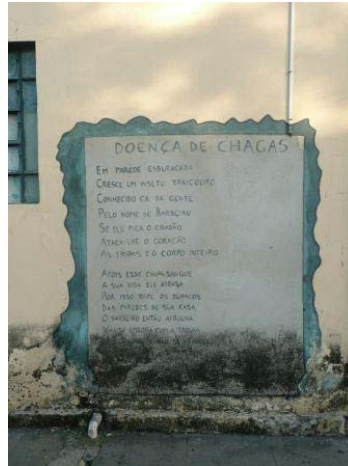 DOENÇA DE CHAGAS
EM PAREDE ESBURACADA
CRESCE UM INSETO TRAIÇOEIRO
CONHECIDO CÁ DA GENTE
PELO NOME DE BARBEIRO
SE ELE PICA O CIDADÃO
ATACA-LHE O CORAÇÃO
AS TRIPAS E O CORPO INTEIRO
APOIS ESSE CHUPA SANGUE
A SUA VIDA ELE ATRASA
POR ISSO TAPE OS BURACOS
DAS PAREDES DE SUA CASA
O BARBEIRO ENTÃO AFROUXA